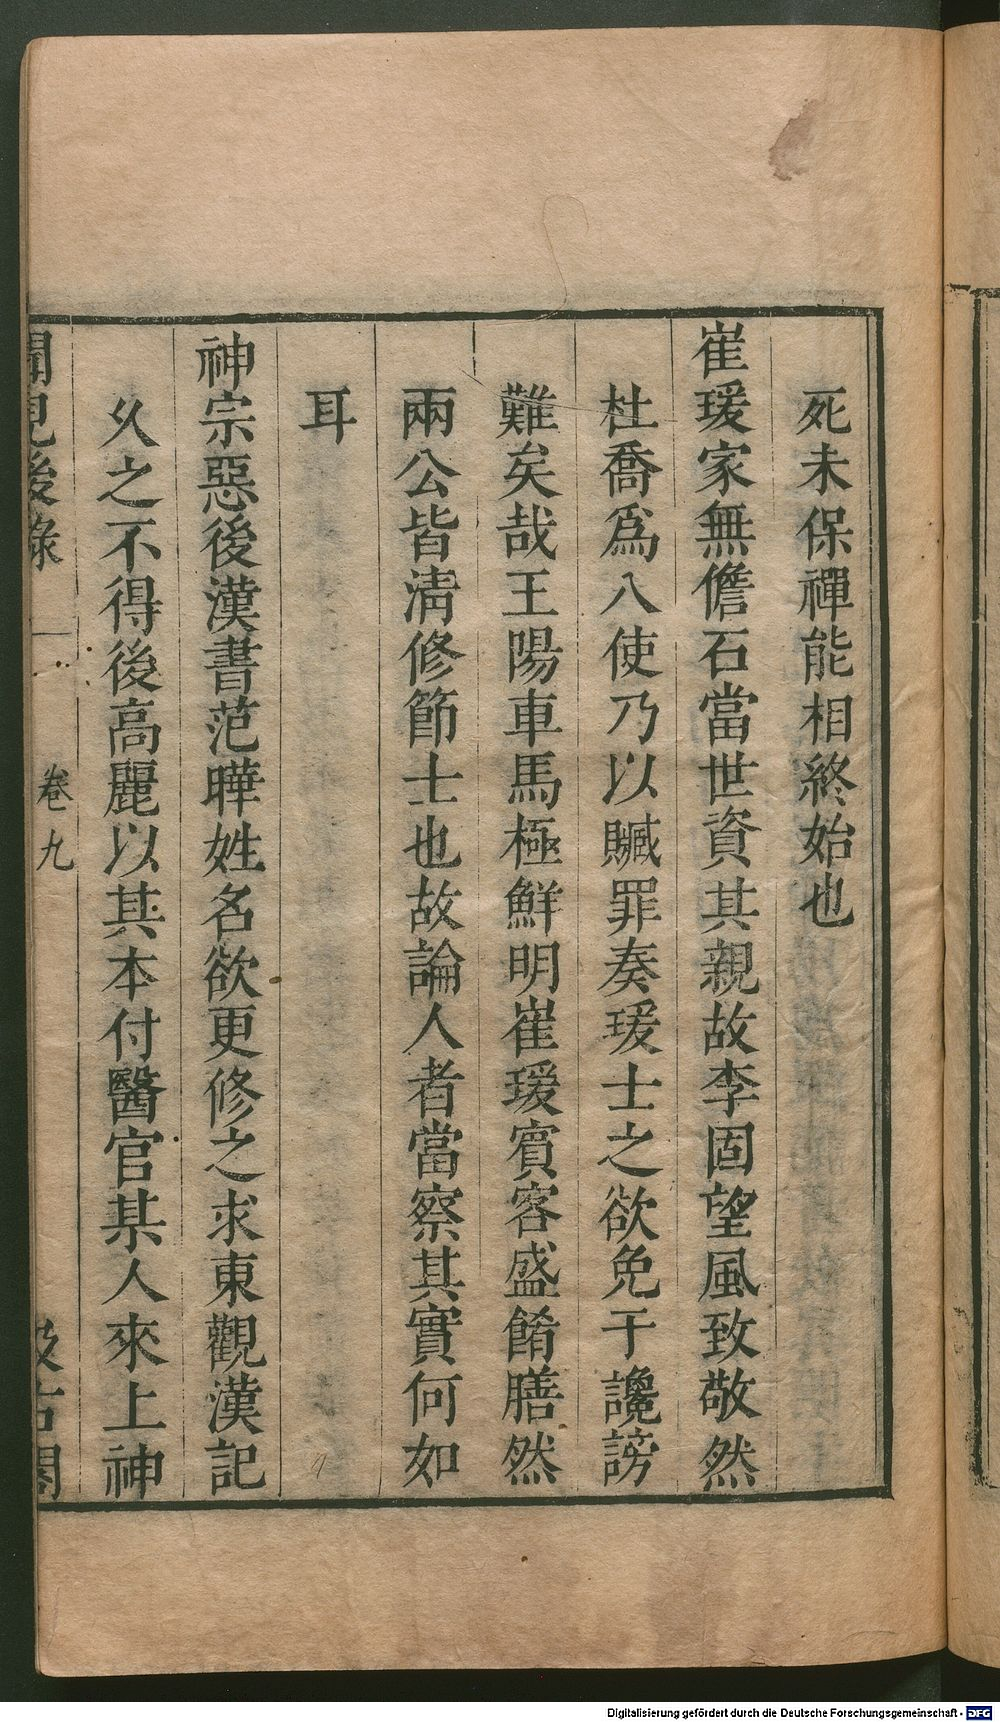 死未保禪能相終始也
崔瑗家無儋石當世資其親故李固望風致敬然
杜喬爲八使乃以贓罪奏瑗士之欲免于讒謗
難矣哉王陽車馬極鮮明崔瑗賓客盛餚膳然
兩公皆清修節士也故論人者當察其實何如
耳
神宗惡後漢書范曄姓名欲更修之求東觀漢記
久之不得後高麗以其本付醫官某人來上神
聞見後錄
卷九
汲古閣
Digitalisierung gefördert durch die Deutsche Forschungsgemeinschaft - DFG